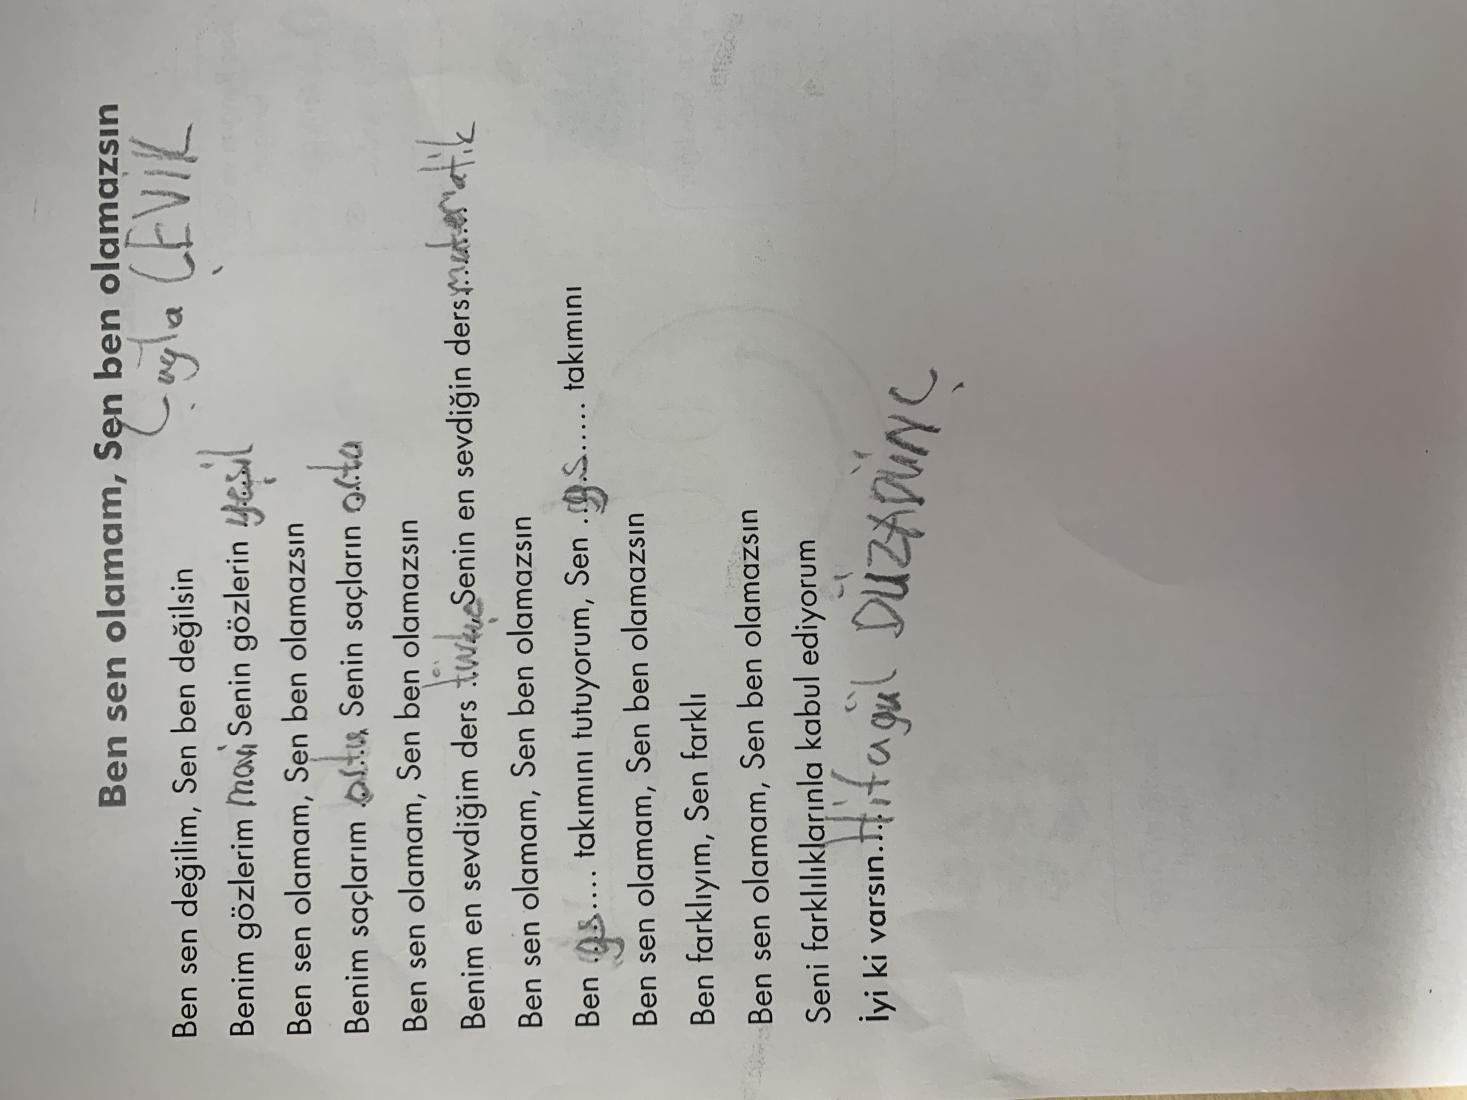 Ben sen olamam, Sen ben olamazsın
Çağla ÇEVİK
Ben sen değilim, Sen ben değilsin
Benim gözlerim mavi Senin gözlerin yeşil
Ben sen olamam, Sen ben olamazsın
Benim saçlarım orta Senin saçların orta
Ben sen olamam, Sen ben olamazsın
Benim en sevdiğim ders türkçe Senin en sevdiğin ders matematik
Ben sen olamam, Sen ben olamazsın
Ben .gs.... takımını tutuyorum, Sen .gs..... takımını
Ben sen olamam, Sen ben olamazsın
Ben farklıyım, Sen farklı
Ben sen olamam, Sen ben olamazsın
Seni farklılıklarınla kabul ediyorum
İyi ki varsın....